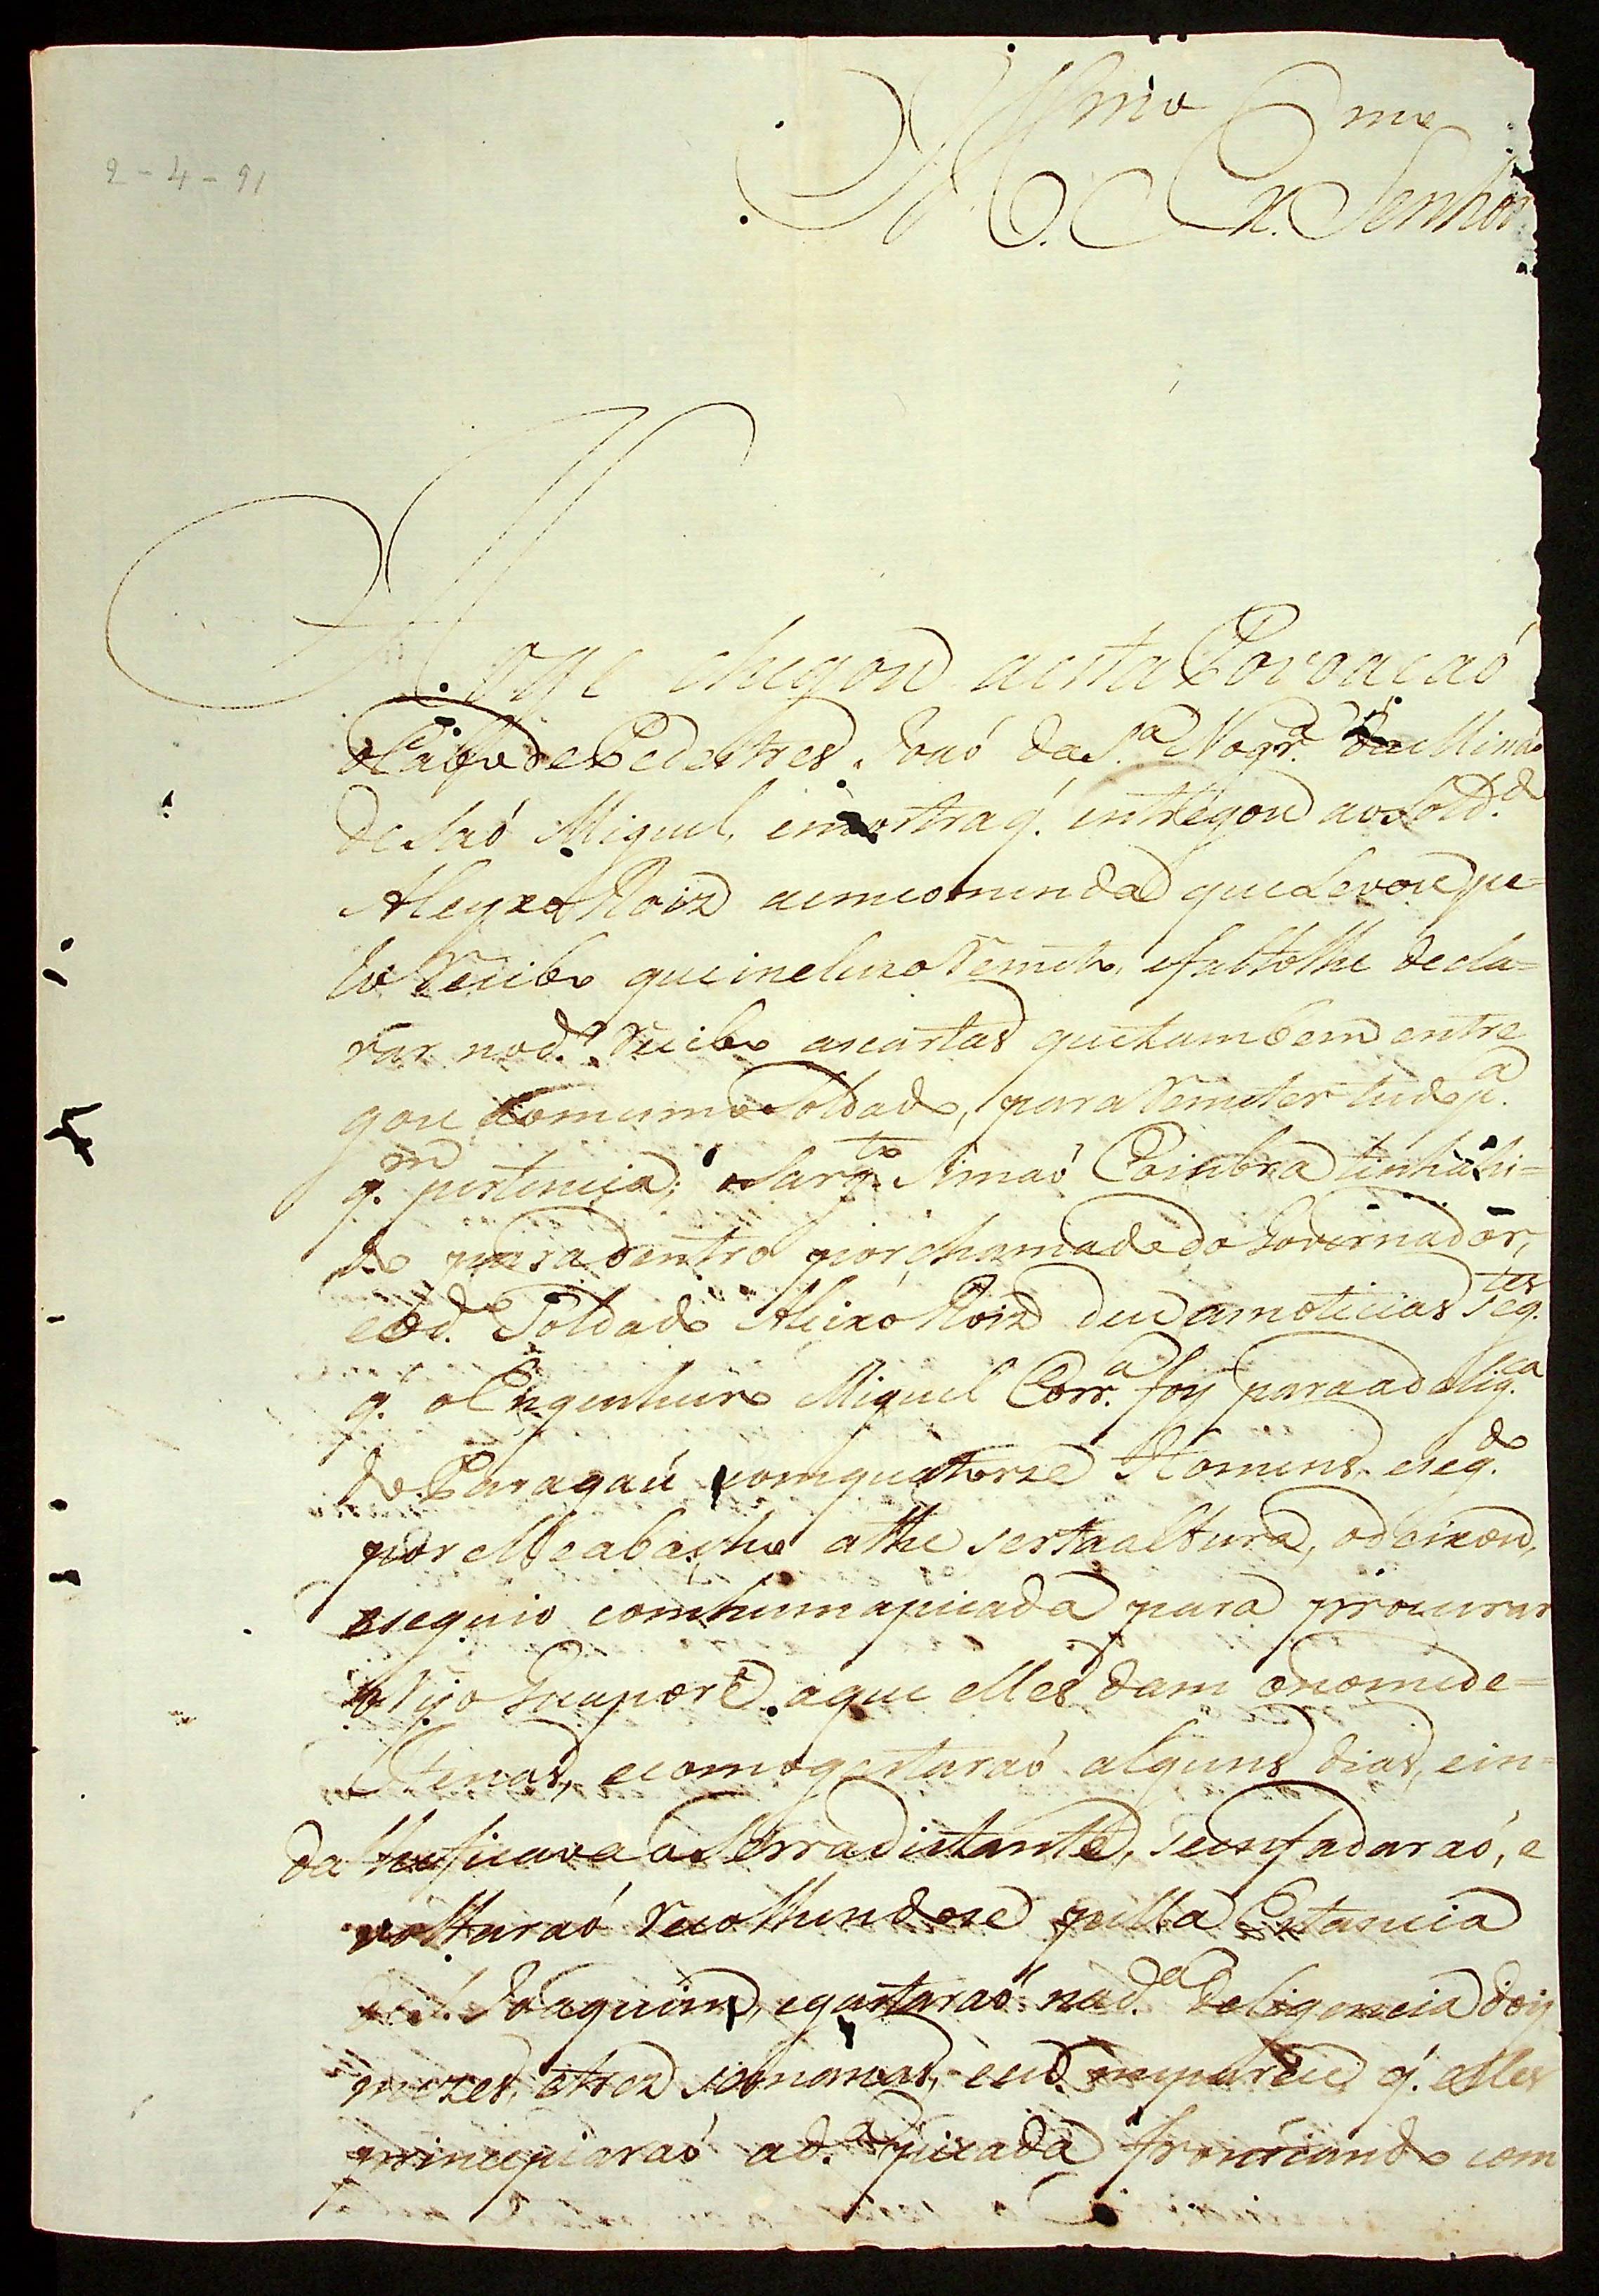 2-4-91
Illmo Exmo
S.r Senhor
Hoje chegou a esta Povoacaó
o Cabo de Pedestres Joaó da S.a Nogr.a da Missaó
de Saó Miguel, emostra q. entregou ao Sold.do
Aleyxo Roiz aemcomenda que Levou pe=
lo Recibo que incluzo Remeto, efaltolhe decla=
rar no d.o Recibo as cartas que tambem entre
gou ao mesmo Soldado, para Remeter tudo p.a
q.m pertencia; o Sarg.to Simaó Coinbra tinha hi=
do para dentro por chamado do Governador,
e o d.o Soldado Aleixo Roiz deu as noticias seg.tes
q. o Engenheiro Miguel Corr.a foy para a dilig.ca
do Paragaú com quatorze Homens, e seg.do
por elle abacho athe serta altura, o deixou,
e seguio com huma picada para procurar
o Ryo Guaporé aque elles dam o nome de=
Itenas, e como gastaraó alguns dias, ein=
da lhe ficava a Serra distante, se enfadaraó, e
voltaraó Recolhendose pella Estancia
de S. Joaquim, e gastaraó na d.a Deligencia dois
mezes, e tres somanas, e eu me pareci q. elles
principiaraó a d.a picada fronteando com